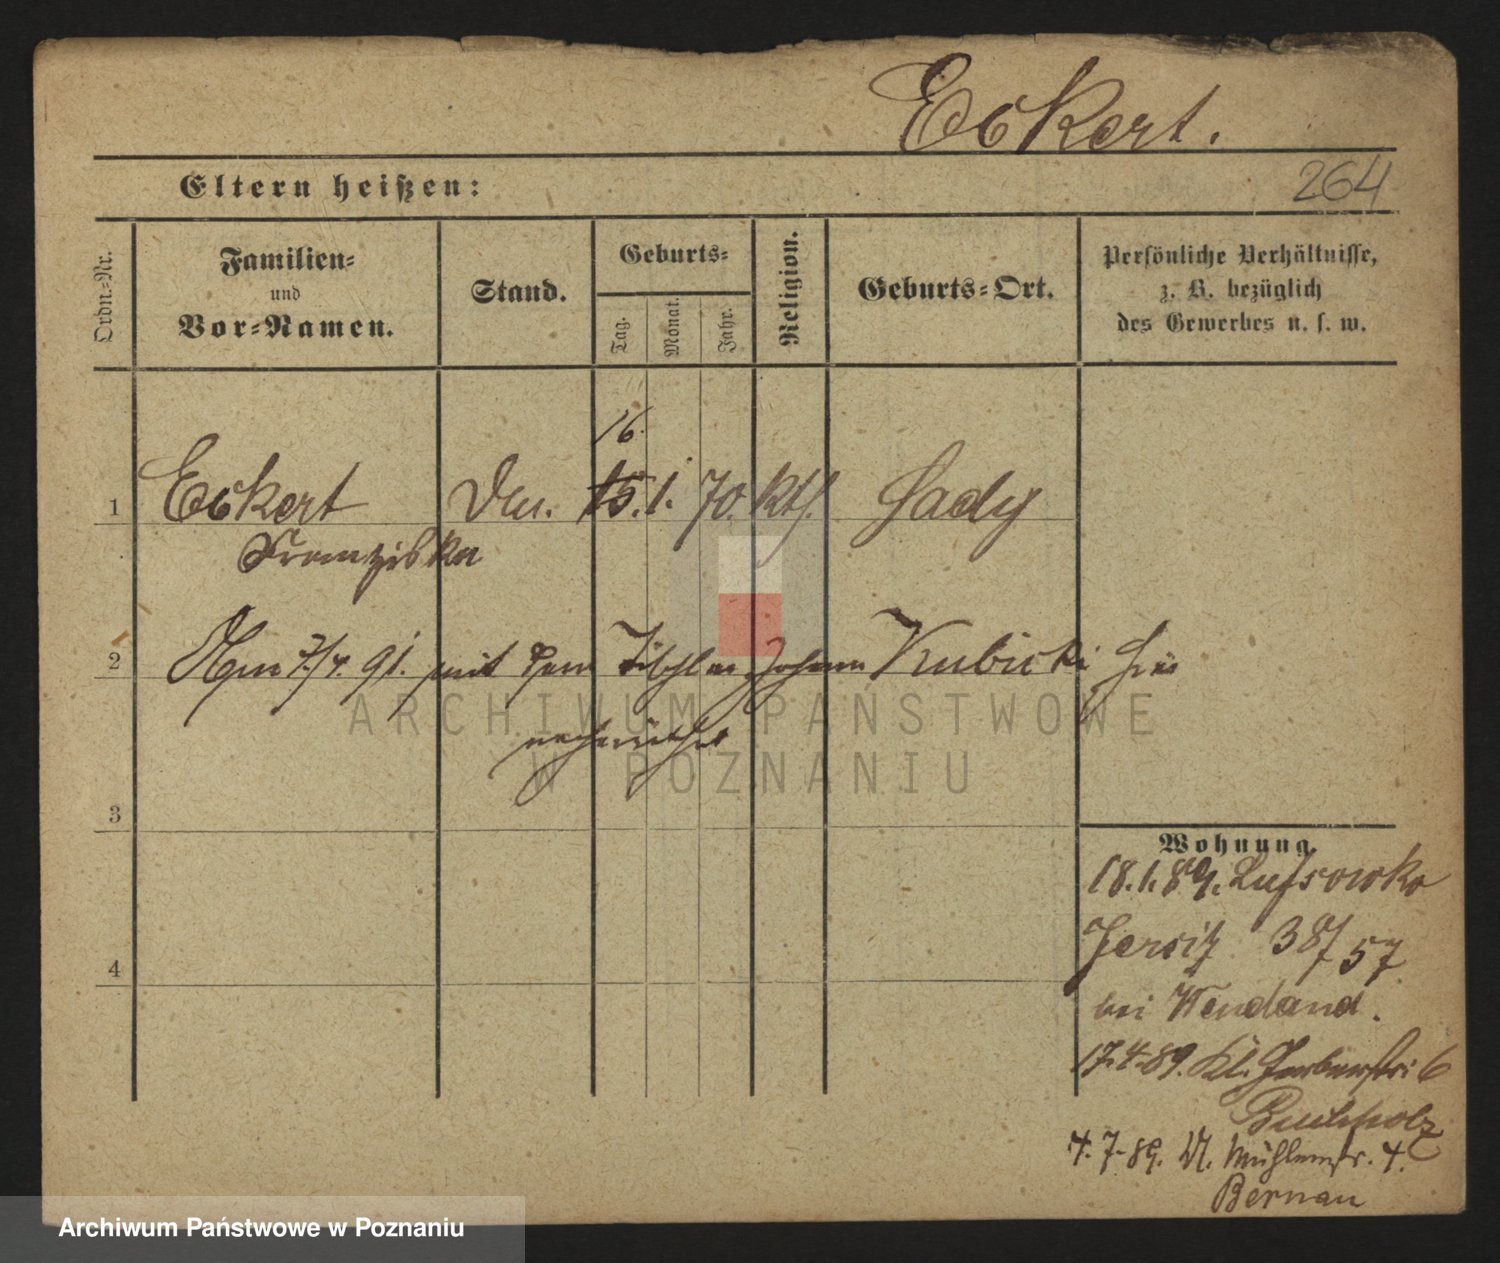 Eckert.
264
Eltern heißen:
Ordn.-Nr.
Familien-
und
Vor-Namen.
Stand.
Geburts-
Tag.
Monat.
Jahr.
Religion.
Geburts-Ort.
Persönliche Verhältnisse,
z. B. bezüglich
des Gewerbes u. s. w.
16.
1 Eckert 15. 1. 70. kth. Sady
Franziska
2 Am 7/4. 91. mit dem Tischler Johann Kubicki hier
ARCHIWUM PAŃSTWOWE
W POZNANIU
3
Wohnung.
18.1.89. Lussowko
Jersitz 38/57
4
bei Wendland.
17.4.89. Kl. Gerberstr: 6
Buchholz
4.7.89. Kl. Mühlenstr. 4.
Bernau
Archiwum Państwowe w Poznaniu